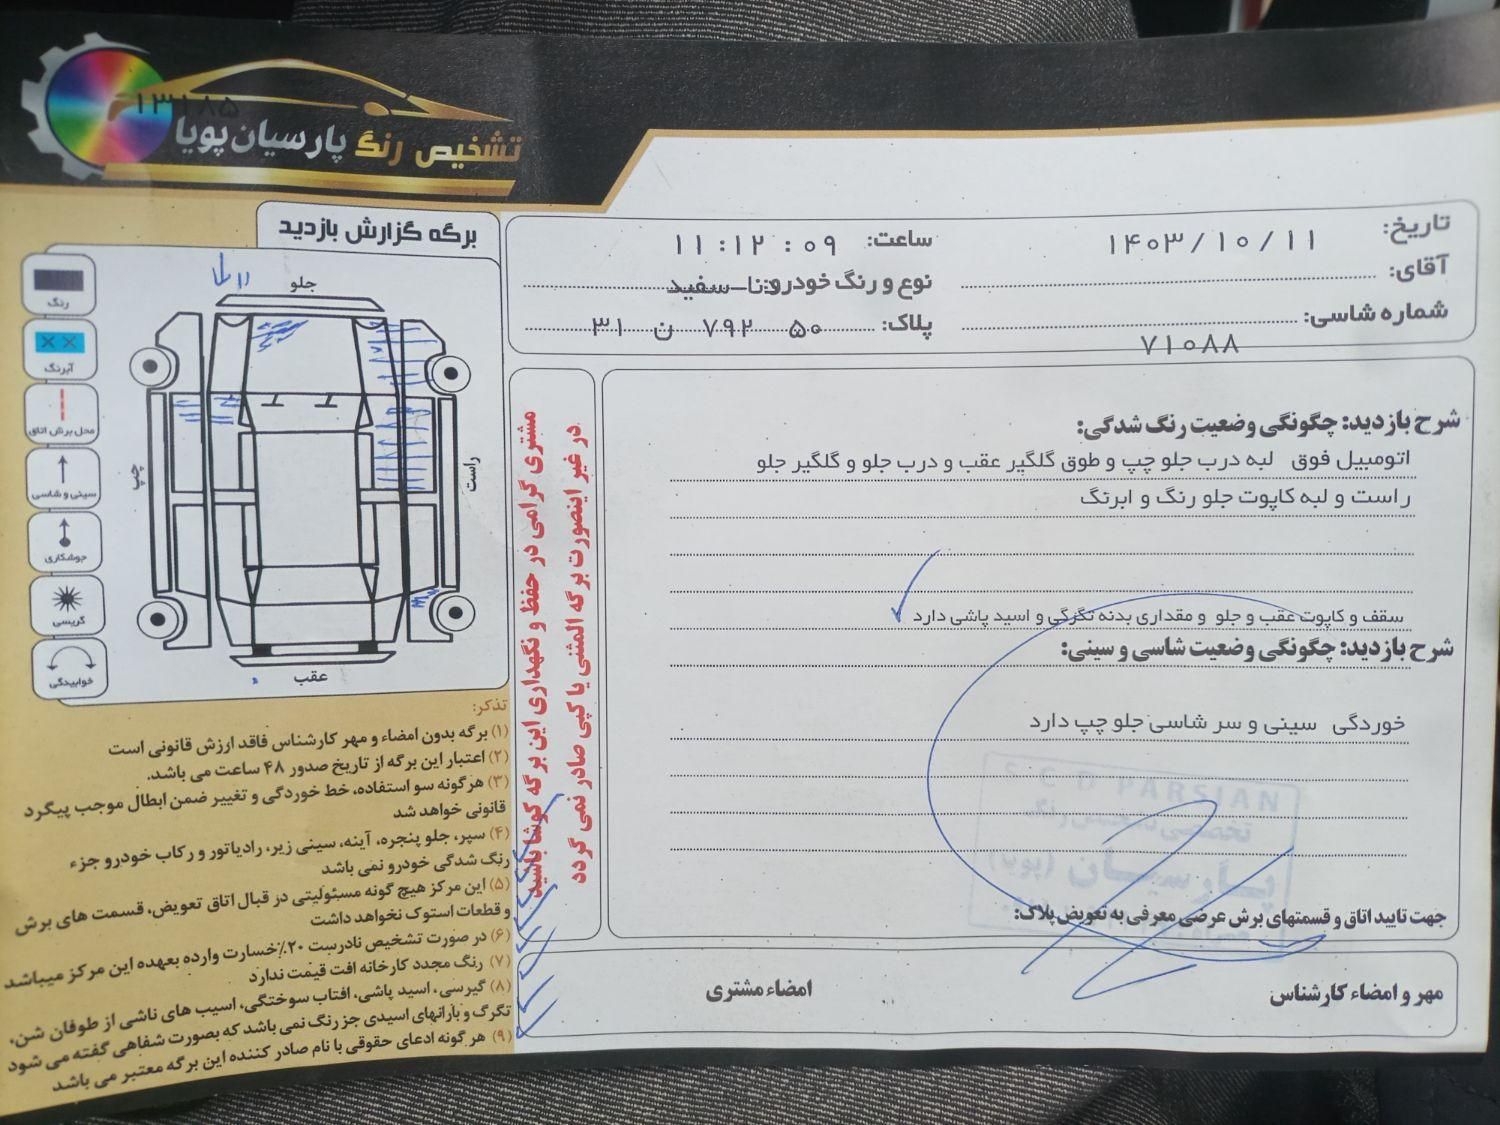 ۱۳۱۸۵
تشخیص رنگ پارسیان پویا
برگه گزارش بازدید
تاریخ: ۱۴۰۳/۱۰/۱۱
ساعت: ۱۱:۱۲:۰۹
آقای:
نوع و رنگ خودرو: دنا-سفید
شماره شاسی: ۷۱۰۸۸
پلاک: ۵۰ ۷۹۲ ن ۳۱
رنگ
آبرنگ
محل برش اتاق
سینی و شاسی
جوشکاری
گریسی
خوابیدگی
جلو
چپ
راست
عقب
شرح بازدید: چگونگی وضعیت رنگ شدگی:
اتومبیل فوق لبه درب جلو چپ و طوق گلگیر عقب و درب جلو و گلگیر جلو
راست و لبه کاپوت جلو رنگ و ابرنگ
سقف و کاپوت عقب و جلو و مقداری بدنه تگرگی و اسید پاشی دارد
شرح بازدید: چگونگی وضعیت شاسی و سینی:
خوردگی سینی و سر شاسی جلو چپ دارد
جهت تایید اتاق و قسمتهای برش عرضی معرفی به تعویض پلاک:
مهر و امضاء کارشناس
امضاء مشتری
C D PARSIAN
پارسیان (پویا)
مشتری گرامی در حفظ و نگهداری این برگه کوشا باشید
در غیر اینصورت برگه المثنی یا کپی صادر نمی گردد
تذکر:
۱) برگه بدون امضاء و مهر کارشناس فاقد ارزش قانونی است
۲) اعتبار این برگه از تاریخ صدور ۴۸ ساعت می باشد.
۳) هرگونه سو استفاده، خط خوردگی و تغییر ضمن ابطال موجب پیگرد
قانونی خواهد شد
۴) سپر، جلو پنجره، آینه، سینی زیر، رادیاتور و رکاب خودرو جزء
رنگ شدگی خودرو نمی باشد
۵) این مرکز هیچ گونه مسئولیتی در قبال اتاق تعویض، قسمت های برش
و قطعات استوک نخواهد داشت
۶) در صورت تشخیص نادرست ۲۰٪ خسارت وارده بعهده این مرکز میباشد
۷) رنگ مجدد کارخانه افت قیمت ندارد
۸) گیرسی، اسید پاشی، افتاب سوختگی، اسیب های ناشی از طوفان شن،
تگرگ و بارانهای اسیدی جز رنگ نمی باشد که بصورت شفاهی گفته می شود
۹) هر گونه ادعای حقوقی با نام صادر کننده این برگه معتبر می باشد